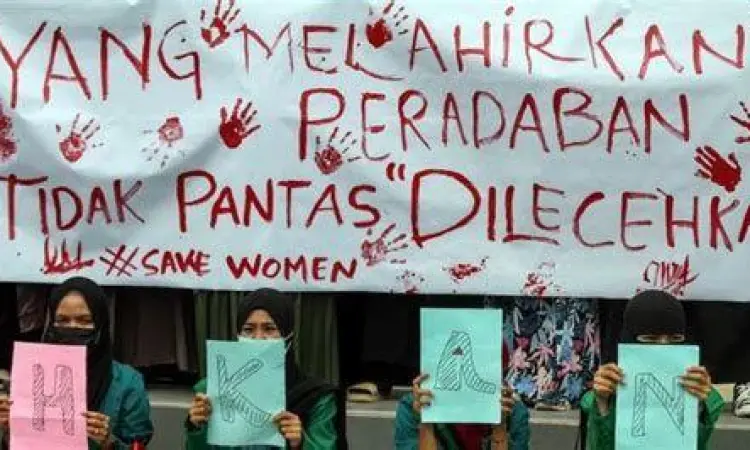 YANG MELAHIRKAN
PERADABAN
TIDAK PANTAS "DILECEHKA
#SAVE WOMEN
H K A N